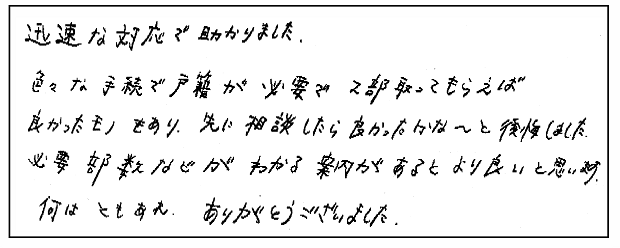 迅速な対応で助かりました.
色々な手続で戸籍が必要で2部取ってもらえば
良かったモノもあり.先に相談したら良かったかな〜と後悔しました.
必要部数などがわかる案内があるとより良いと思います.
何はともあれ.ありがとうございました.